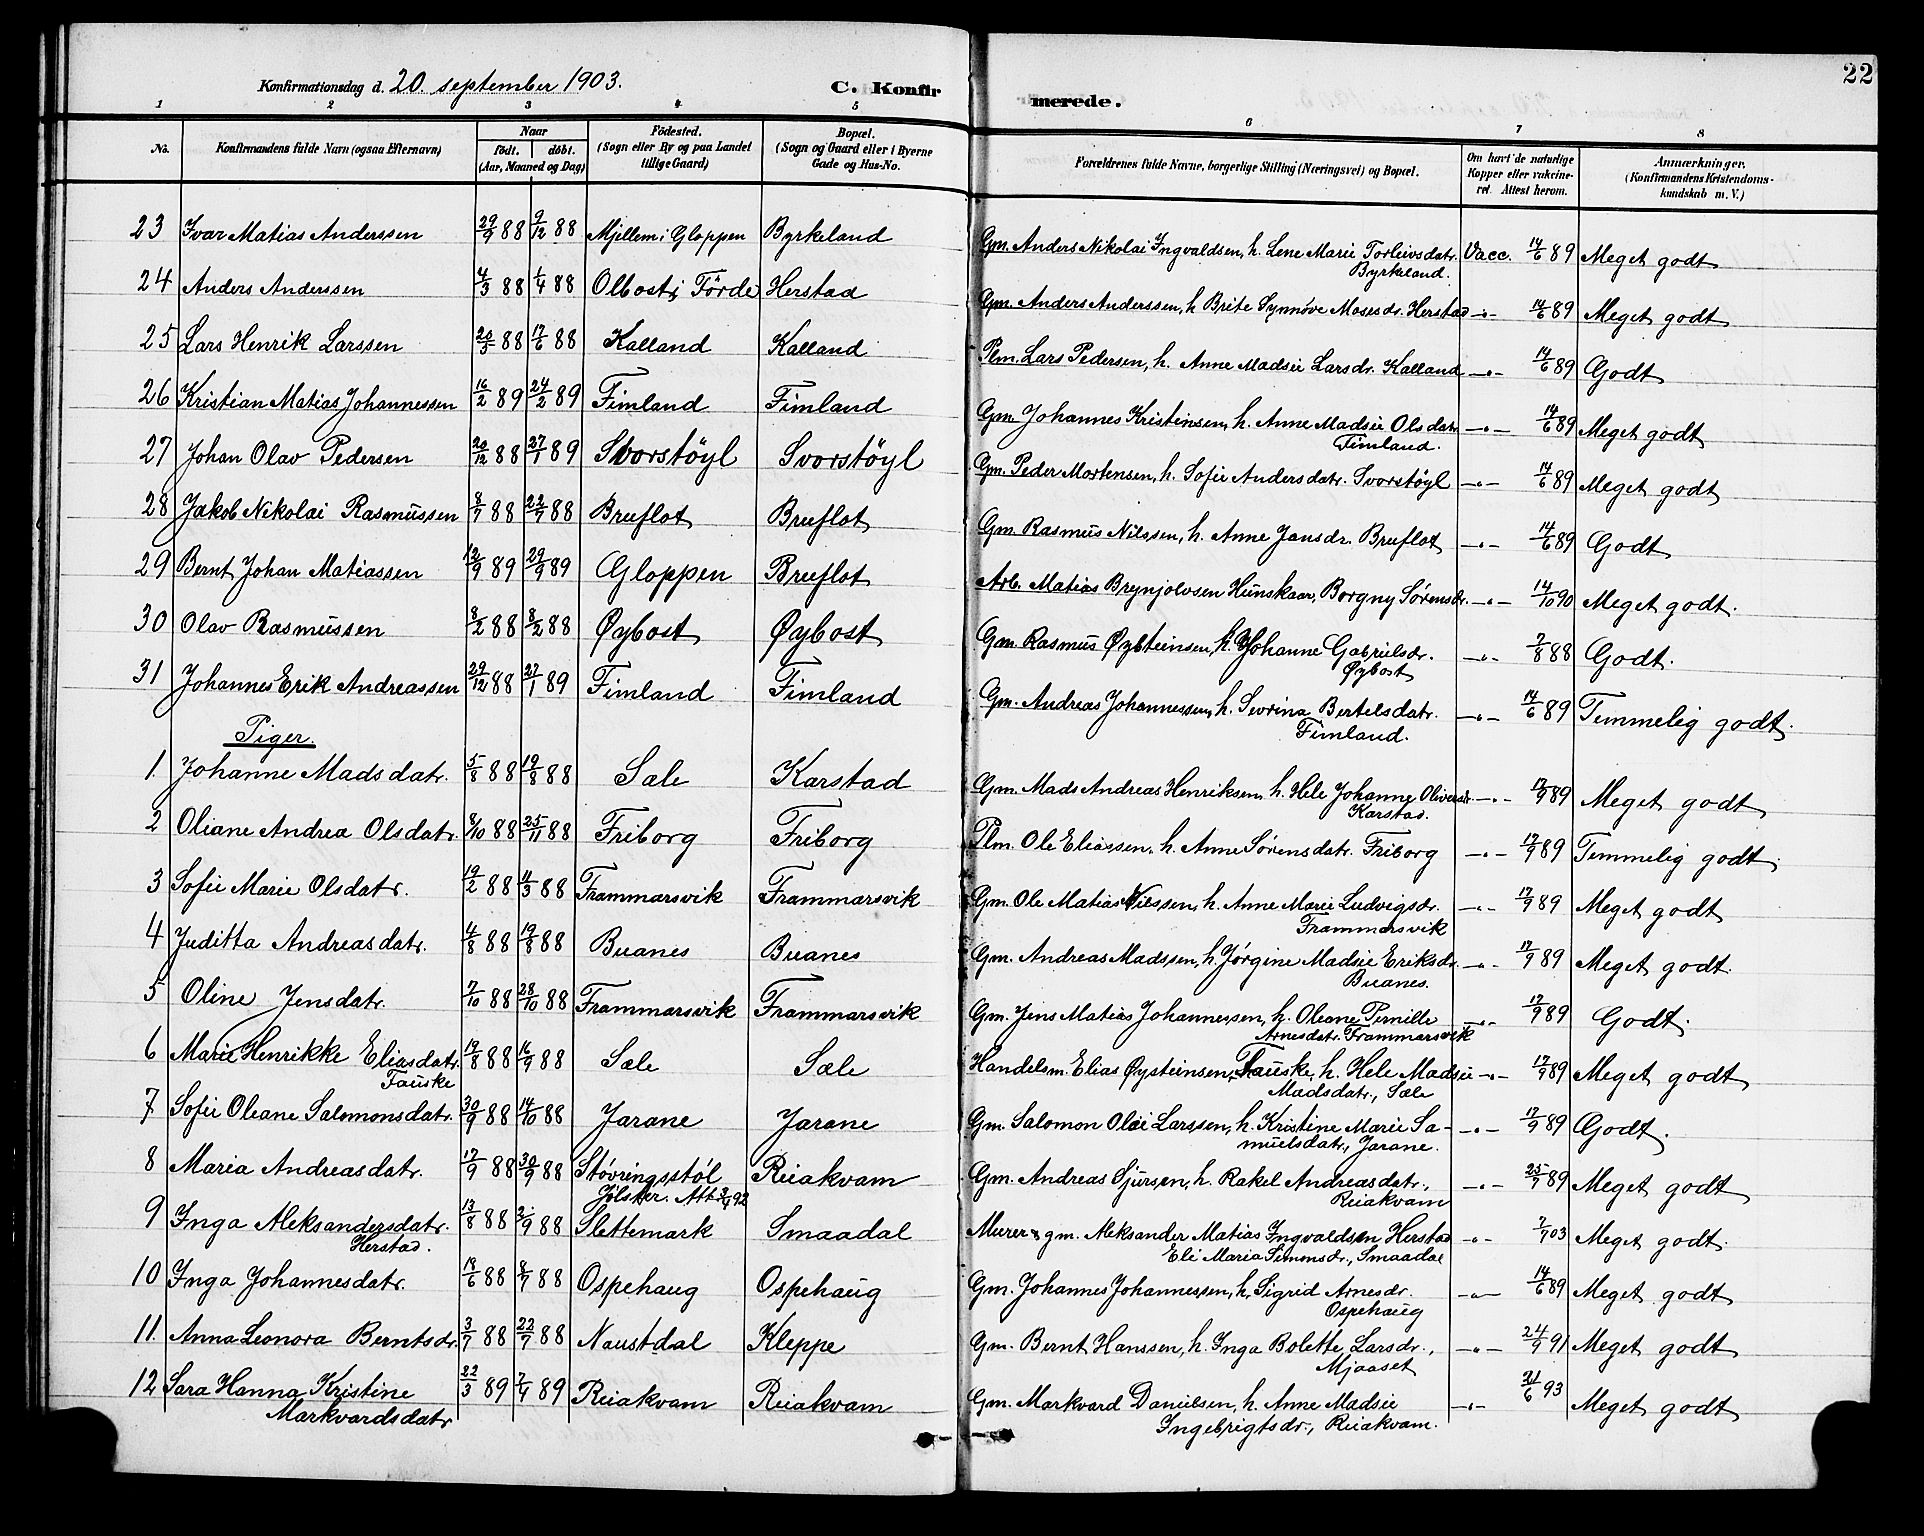 22
Konfirmationsdag d. 20. september 1903. C. Konfirmerede.
1 2 3 4 5 6 7 8
No. Konfirmandens fulde Navn (ogsaa Efternavn) Naar födt. döbt. (Aar, Maaned og Dag) Födested. (Sogn eller By og paa Landet tillige Gaard) Bopæl. (Sogn og Gaard eller i Byerne Gade og Hus-No. Forældrenes fulde Navne, borgerlige Stilling (Næringsvei) og Bopæl. Om havt de naturlige Kopper eller vakcineret. Attest herom. Anmærkninger. (Konfirmandens Kristendomskundskab m. V.)
23 Ivar Matias Anderssen 29/9 88 9/12 88 Mjellem i Gloppen Byrkeland Gm. Anders Nikolai Ingvaldsen, h. Lene Marie Torleivsdatr. Vacc. 14/6 89 Meget godt
Byrkeland.
24 Anders Anderssen 4/3 88 1/4 88 Olbost i Förde Herstad Gm. Anders Anderssen, h Brite Synnøve Mosesdr. Herstad -"- 14/6 89 Meget godt
25 Lars Henrik Larssen 20/5 88 17/6 88 Kalland Kalland Plm. Lars Pedersen, h. Anne Madsie Larsdr. Kalland -"- 14/6 89 Godt
26 Kristian Matias Johannessen 16/2 89 24/2 89 Fimland Fimland Gm. Johannes Kristensen, h. Anne Madsie Olsdatr -"- 14/6 89 Meget godt
Fimland.
27 Johan Olav Pedersen 20/12 88 27/1 89 Svorstøyl Svorstøyl Gm. Peder Mortensen, h. Sofie Andersdatr. Svorstøyl -"- 14/6 89 Meget godt
28 Jakob Nikolai Rasmussen 8/7 88 22/7 88 Bruflot Bruflot Gm. Rasmus Nilssen, h. Anne Jansdr. Bruflot -"- 14/6 89 Godt
29 Bernt Johan Matiassen 12/9 89 29/9 89 Gloppen Bruflot Arb. Matias Brynjolvsen Hunskaar, Borgny Sørensdr. -"- 14/10 90 Meget godt.
30 Olav Rasmussen 8/2 88 8/2 88 Øybost Øybost Gm. Rasmus Øysteinsen, h. Johanne Gabrielsdr. -"- 7/8 88 Godt.
Øybost
31 Johannes Erik Andreassen 29/12 88 27/1 89 Fimland Fimland Gm. Andreas Johannessen, h. Sevrina Bertelsdatr. -"- 14/6 89 Temmelig godt.
Fimland.
Piger.
1. Johanne Madsdatr. 5/8 88 19/8 88 Sæle Karstad Gm. Mads Andreas Henriksen, h. Hele Johanne Oliversdr -"- 17/9 89 Meget godt
Karstad.
2 Oliane Andrea Olsdatr. 8/10 88 25/11 88 Friborg Friborg Plm. Ole Eliassen, h. Anne Sørensdatr. Friborg -"- 17/9 89 Temmelig godt.
3 Sofie Marie Olsdatr. 19/2 88 11/3 88 Frammarsvik Frammarsvik Gm. Ole Matias Nilssen, h. Anne Marie Ludvigsdr. -"- 17/9 89 Meget godt
Frammarsvik
4 Juditta Andreasdatr. 4/8 88 19/8 88 Buanes Buanes Gm. Andreas Madssen, h. Jørgine Madsie Eriksdr. -"- 17/9 89 Meget godt.
Buanes.
5 Oline Jensdatr. 7/10 88 28/10 88 Frammarsvik Frammarsvik Gm. Jens Matias Johannessen, h. Oleane Pernille -"- 17/9 89 Godt.
Arnesdatr. Frammarsvik
6 Marie Henrikke Eliasdatr. 19/8 88 16/9 88 Sæle Sæle Handelsm. Elias Øysteinsen Fauske, h. Hele Madsie -"- 17/9 89 Meget godt
Fauske Madsdatr., Sæle
7 Sofie Oleane Salomonsdatr. 30/9 88 14/10 88 Jarane Jarane Gm. Salomon Olai Larssen, h. Kristine Marie Sa- -"- 17/9 89 Godt.
muelsdatr., Jarane.
8 Maria Andreasdatr. 17/9 88 30/9 88 Støvringsstøl Reiakvam Gm. Andreas Sjursen, h. Rakel Andreasdatr., -"- 25/7 89 Meget godt
Jølster. Att. 3/4 92 Reiakvam
9 Inga Aleksandersdatr. 13/8 88 2/9 88 Slettemark Smaadal Murer & gm. Aleksander Matias Ingvaldsen Herstad -"- 7/7 03 Meget godt.
Herstad. Eli Maria Simmsdr., Smaadal
10 Inga Johannesdatr. 19/6 88 8/7 88 Ospehaug Ospehaug Gm. Johannes Johannessen, h. Sigrid Arnesdr. -"- 14/6 89 Meget godt
Ospehaug
11. Anna Leonora Berntsdr. 3/7 88 22/7 88 Naustdal Kleppe Gm. Bernt Hanssen, h. Inga Bolette Larsdr., -"- 24/9 91 Meget godt
Mjaaset
12 Sara Hanna Kristine 22/3 89 7/4 89 Reiakvam Reiakvam Gm. Markvard Danielsen, h. Anne Madsie -"- 21/6 93 Meget godt
Markvardsdatr Ingebrigtsdr., Reiakvam.